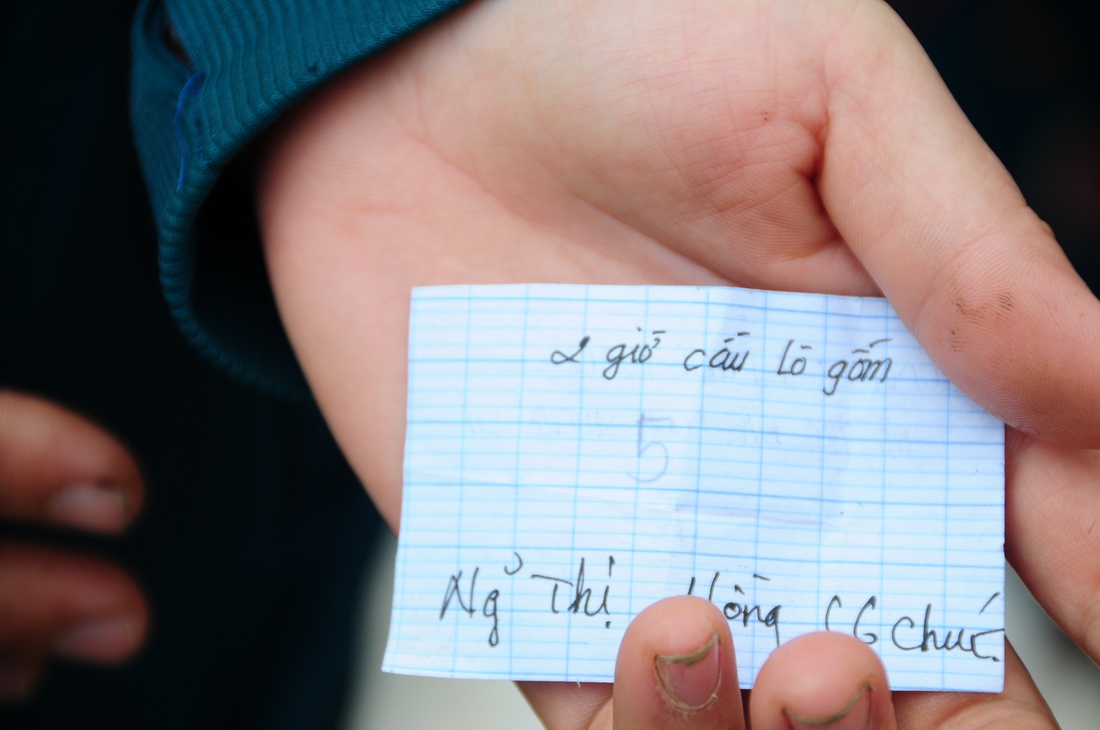 2 giờ cầu lò gốm
5
Ng̉ Thị Hồng CG chức